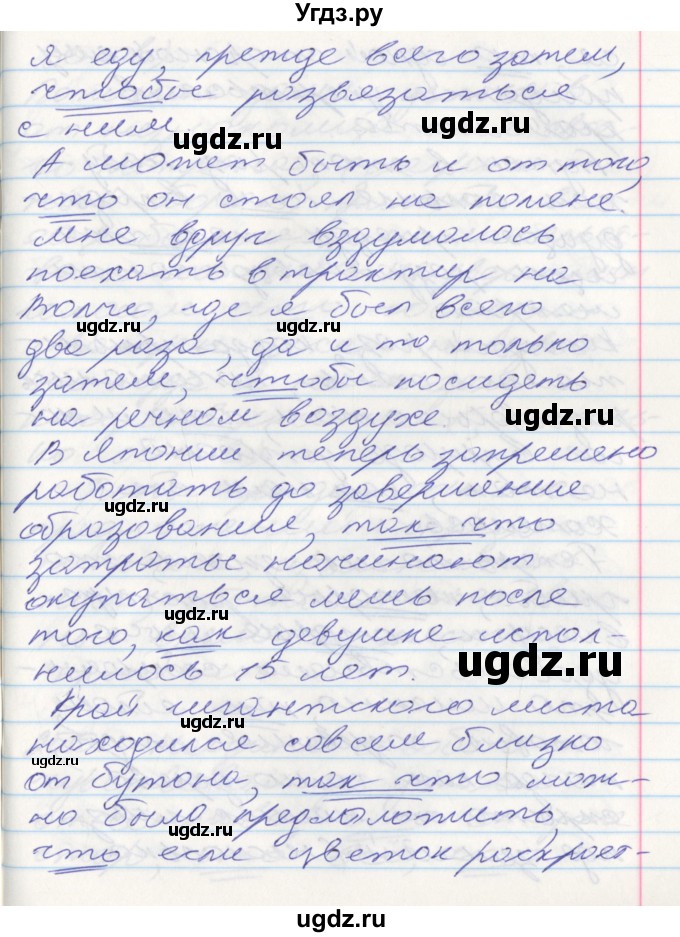 Угдз.ру
я еду, прежде всего затем,
чтобы развязаться
с ним.
ugdz.ru ugdz.ru
А может быть и оттого,
что он стоял на полене.
Мне вдруг вздумалось
поехать в трактир на
Волге, где я был всего
ugdz.ru ugdz.ru
два раза, да и то только
затем, чтобы посидеть
на речном воздухе.
ugdz.ru
В Японии теперь запрещено
работать до завершения
образования, так что
затраты начинают
окупаться лишь после
ugdz.ru
того, как девушке испол-
нилось 15 лет.
ugdz.ru
Край гигантского листа
ugdz.ru
находился совсем близко
от бутона, так что мож-
но было предположить,
ugdz.ru
что если цветок раскроет-
ugdz.ru